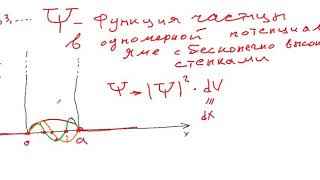 3,.... Ψ - функция частицы
в одномерной потенциал
яме с бесконечно высок
стенками
Ψ → |Ψ|² · dV
dx
0 a x